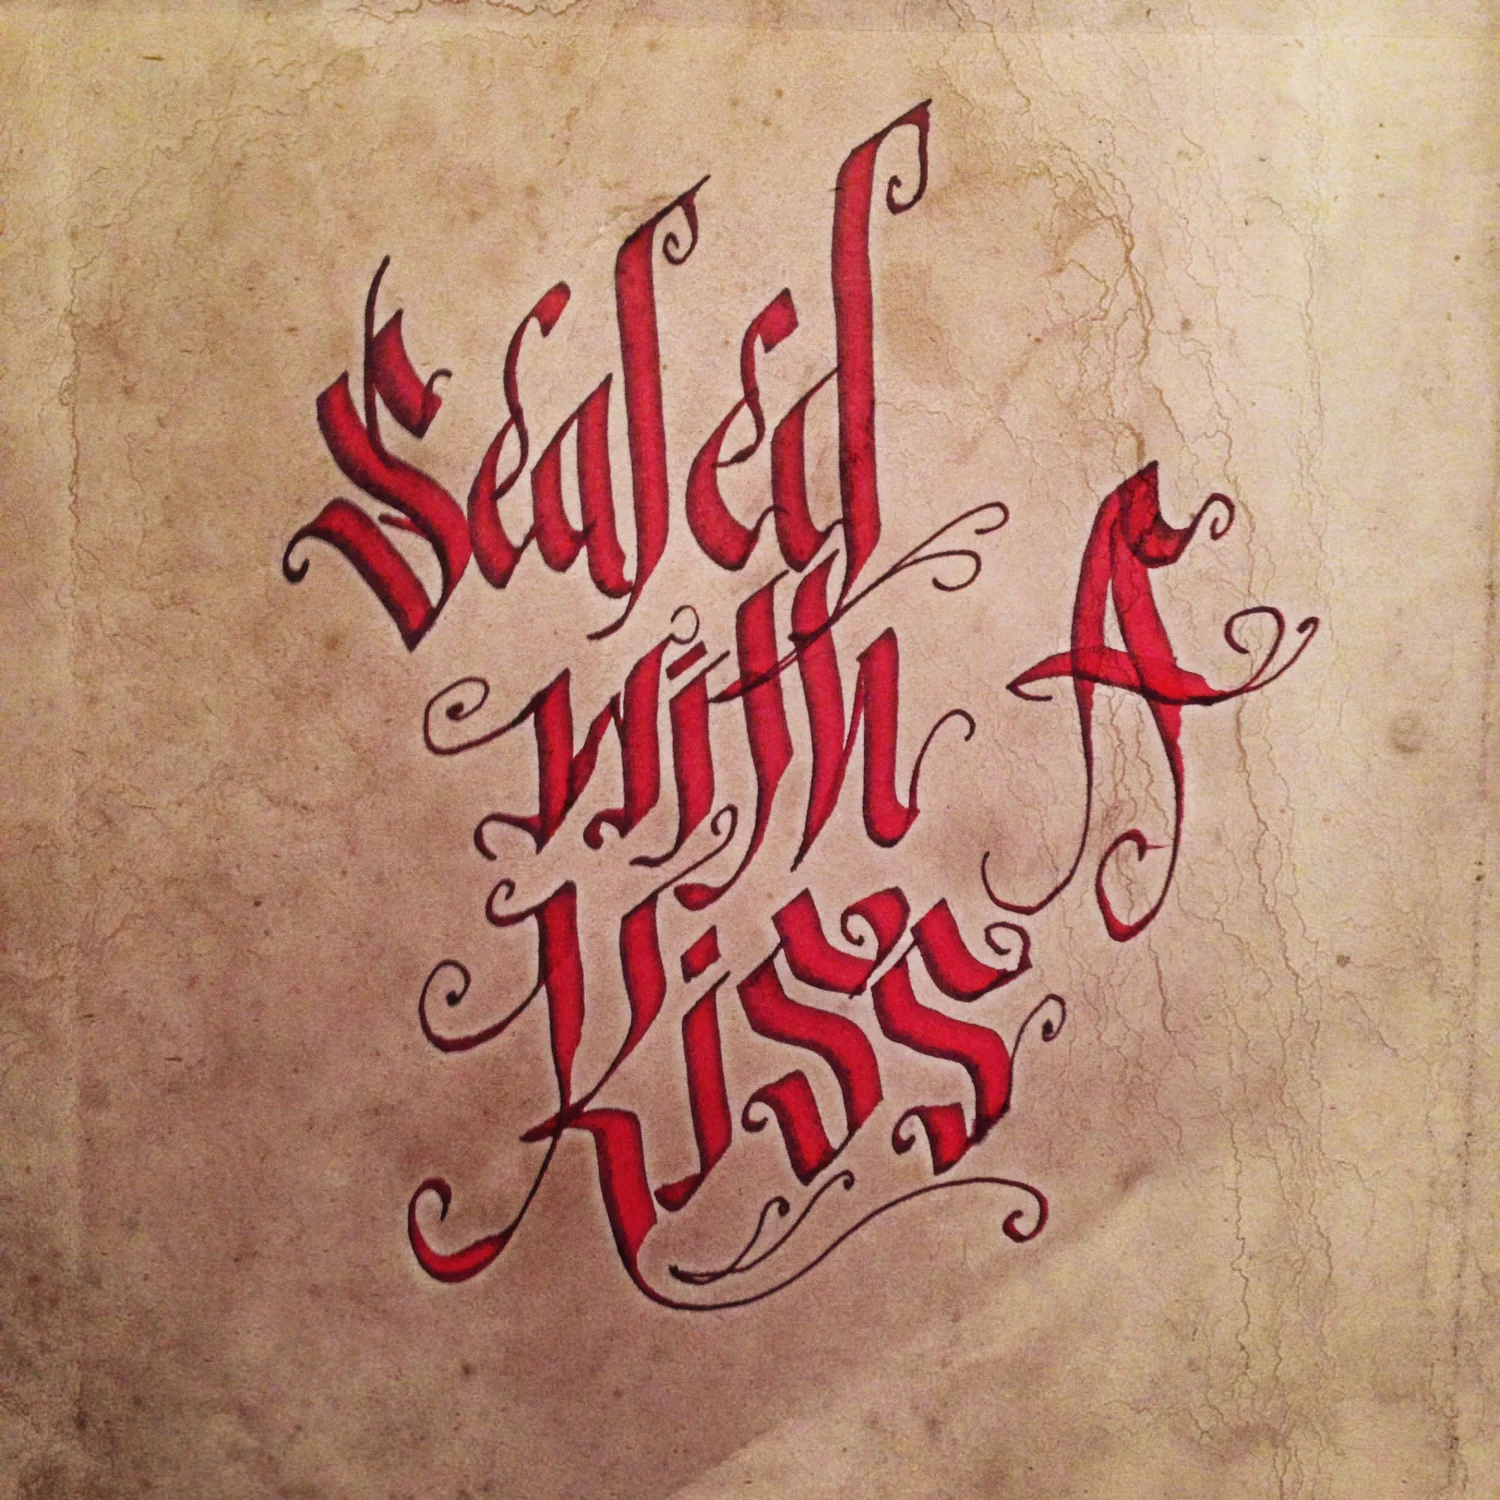 Sealed
with A
Kiss